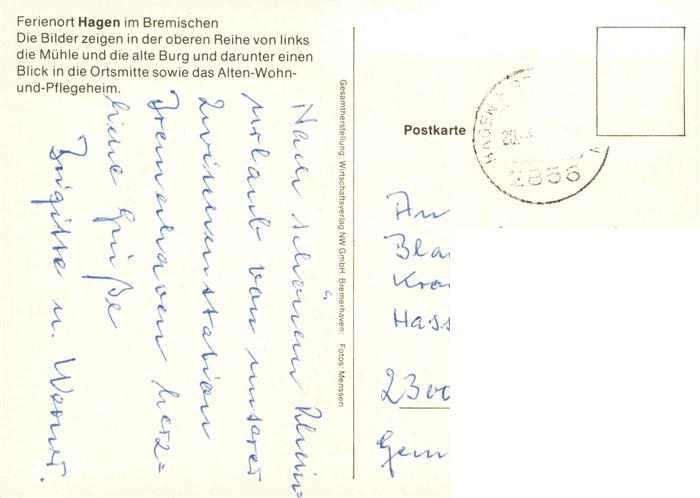 Ferienort Hagen im Bremischen
Die Bilder zeigen in der oberen Reihe von links
die Mühle und die alte Burg und darunter einen
Blick in die Ortsmitte sowie das Alten-Wohn-
und-Pflegeheim.
Nach schönem Klein=
urlaub von unserer
Zwischenstation
Bremerhaven herz=
liche Grüße
Brigitte u. Werner.
Gesamtherstellung: Wirtschaftsverlag NW GmbH, Bremerhaven; Fotos: Menssen
Postkarte
HAGEN
20.
2856
An
Bla
Kra
Hass
2300
Gem